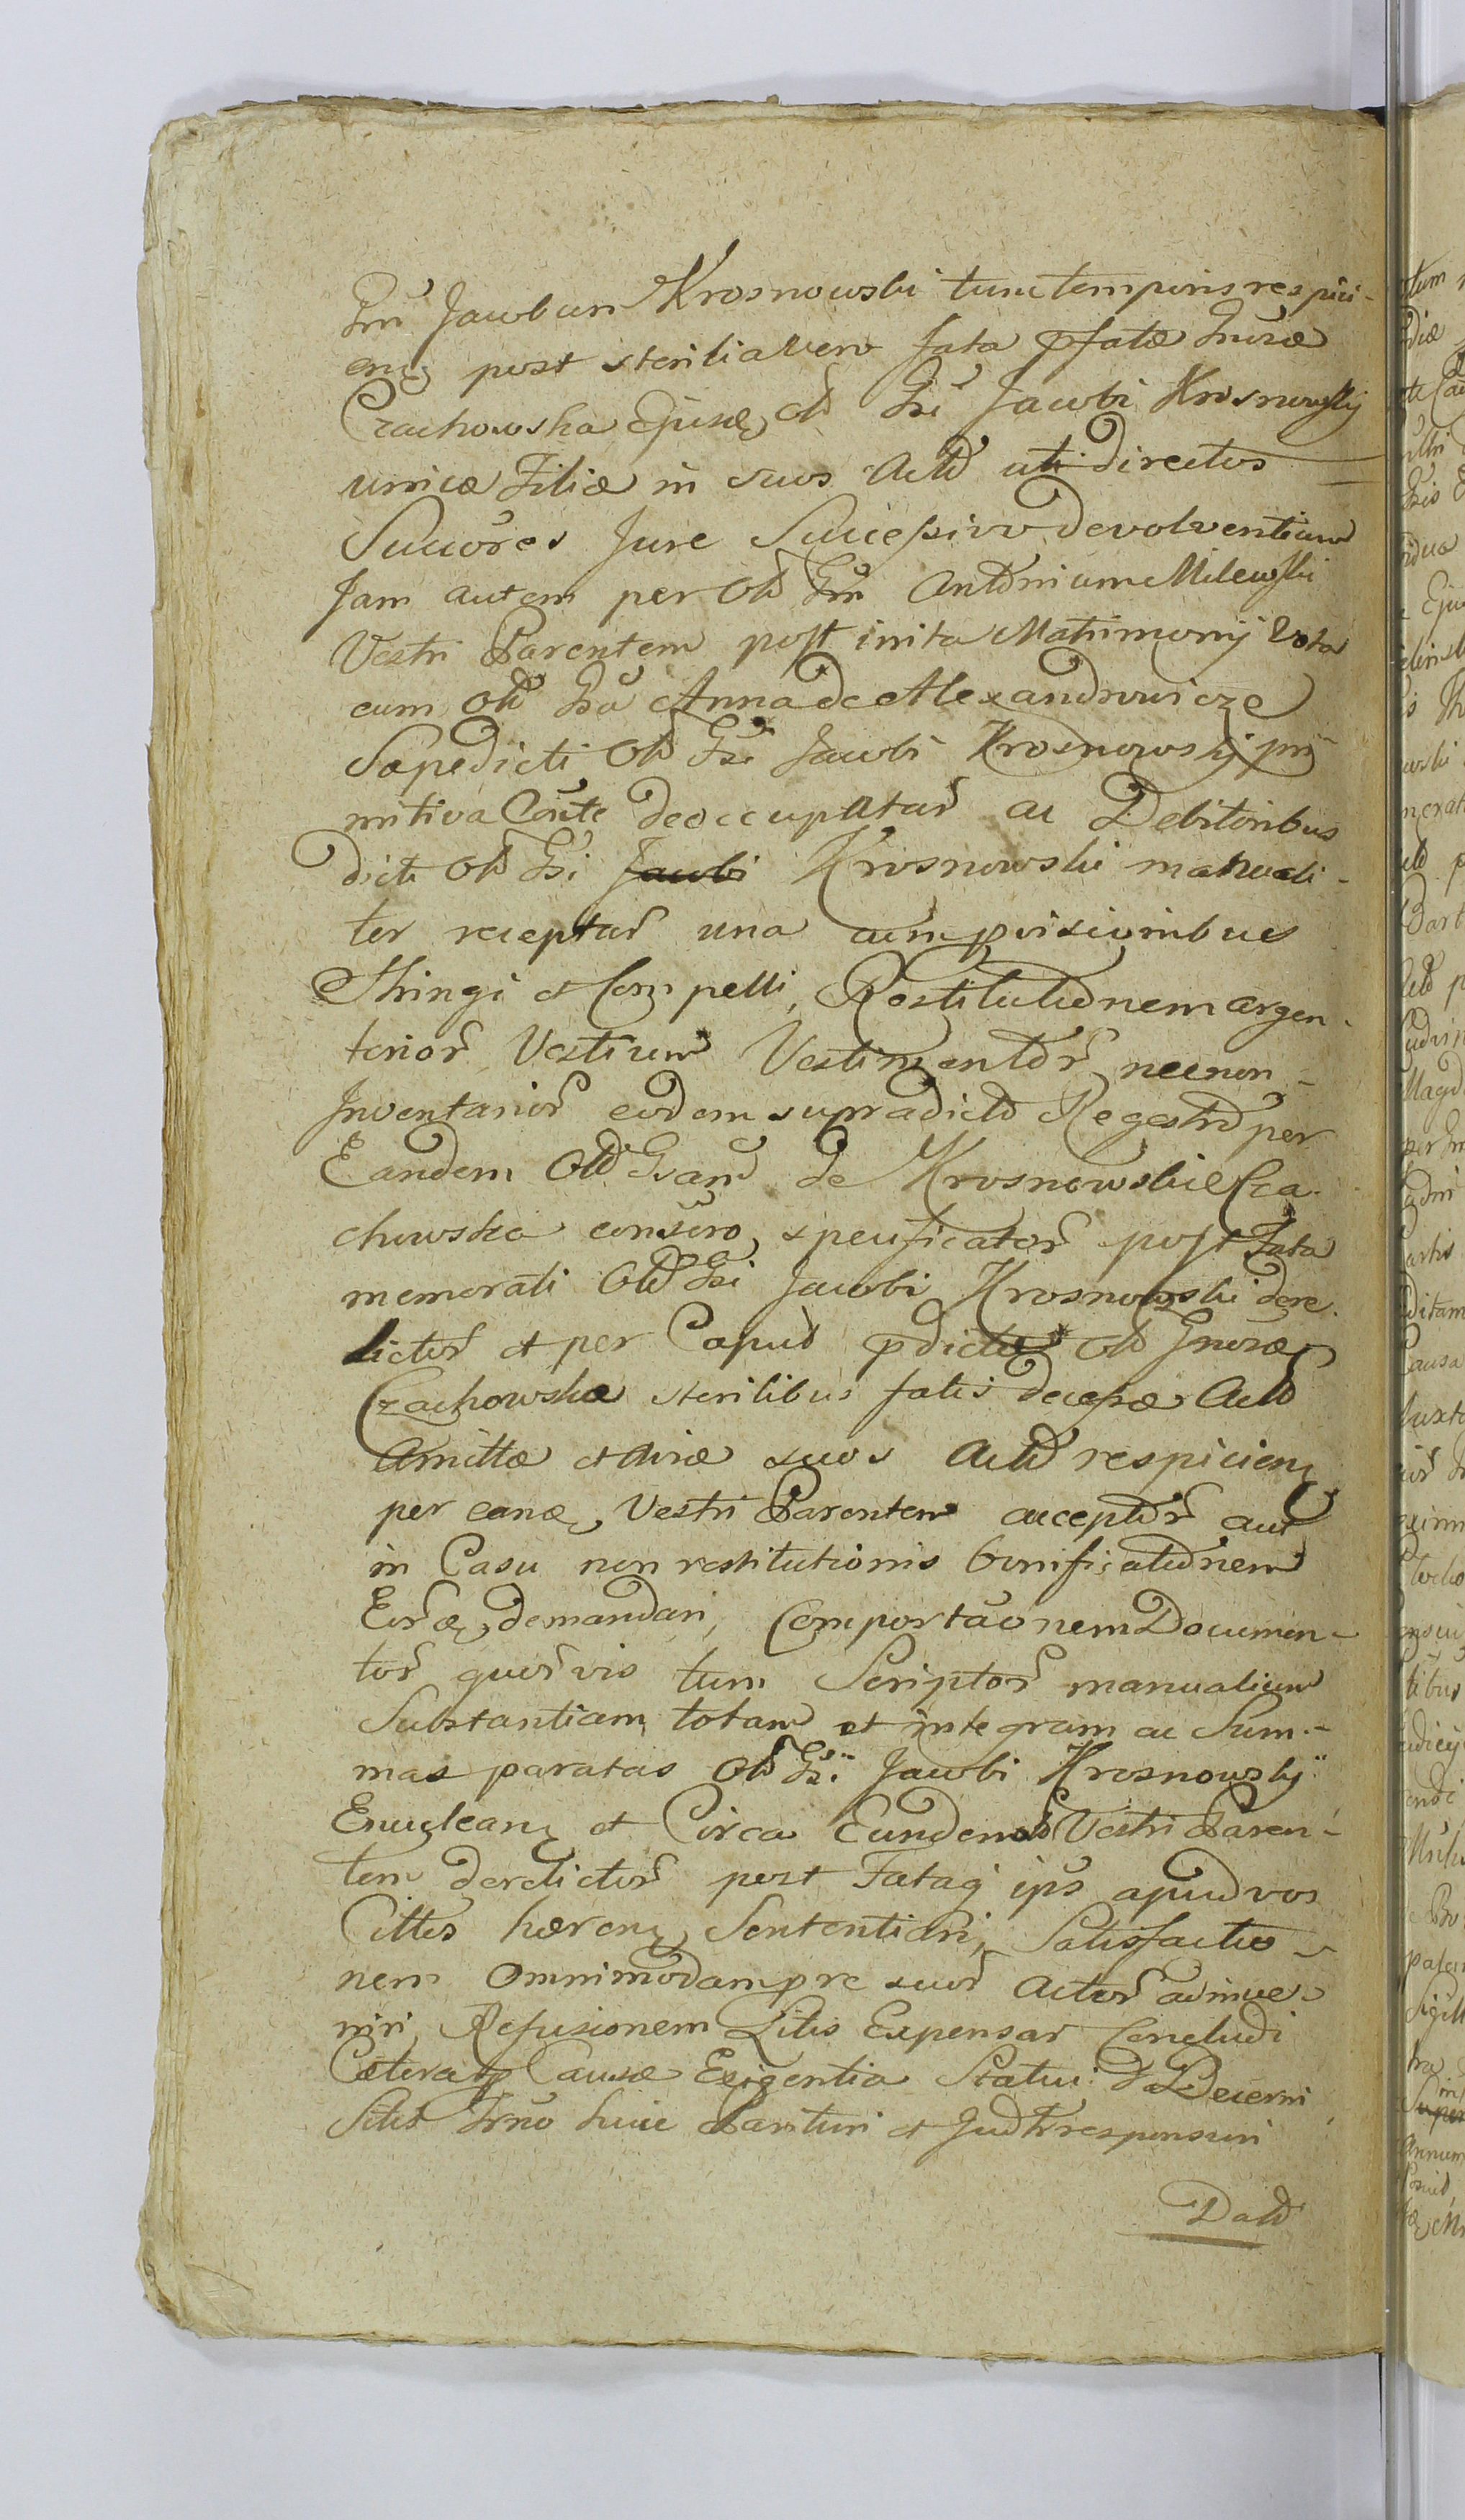 Grū Jacobum Krosnowski tunc temporis respici-
enq post sterilia vero fata pfatæ Gnrosæ
Czachowska Ejusq olt Gsi Jacobi Krosnowskÿ
unicæ Filiæ in suos Actt uti directos
Succores Jure Succeßivo devolventium
Jam autem per Olt Grm Antonium Milewski
Vestri Parentem post inita Matrimonÿ Vota
cum Olt Gsa Anna de Alexandrowicze
Sæpedicti Olt Gsi Jacobi Krosnowskÿ pri
mitiva Conte deoccupatar ac Debitoribus
dicti Olt Gsi Jacobi Krosnowski manuali-
ter receptar una cum provisionibus
Stringi et Compelli, Restitutionem argen-
terior Vestium Vestimentor necnon-
Inventarior eodem supradicto Regestro per
Eandem Olt Gsam de Krosnowskie Cza-
chowska conscro specificator post Fata
memorati Olt Gsi Jacobi Krosnowski dere-
lictor et per Caput pdictæ olt Gnrosæ
Czachowskæ sterilibus fatis deceßæ Actt
Amittæ et aviæ suos Actt respicienq
per eanq Vestri Parentem acceptor aut
in Casu non restitutionis bonificationem
Eorq demandari, Comportaonem Documen-
tor quorvis tum Scriptor manualium
Substantiam totam et integram ac Sum-
mas paratas Olt Gsi Jacobi Krosnowskÿ
Enucleanq et Circa Eundem olt Vestri Paren-
tem derelictor post Fataq ips apud vos
Cittos hærenq Sententiari, Satisfactio-
nem Omnimodam pre suor Actor adinve-
niri, Refusionem Litis Expensar Concludi
Cæteraq Causæ Exigentia Statui & Decerni
Sitis Trno huic Parituri et Judtr responsuri
Datt